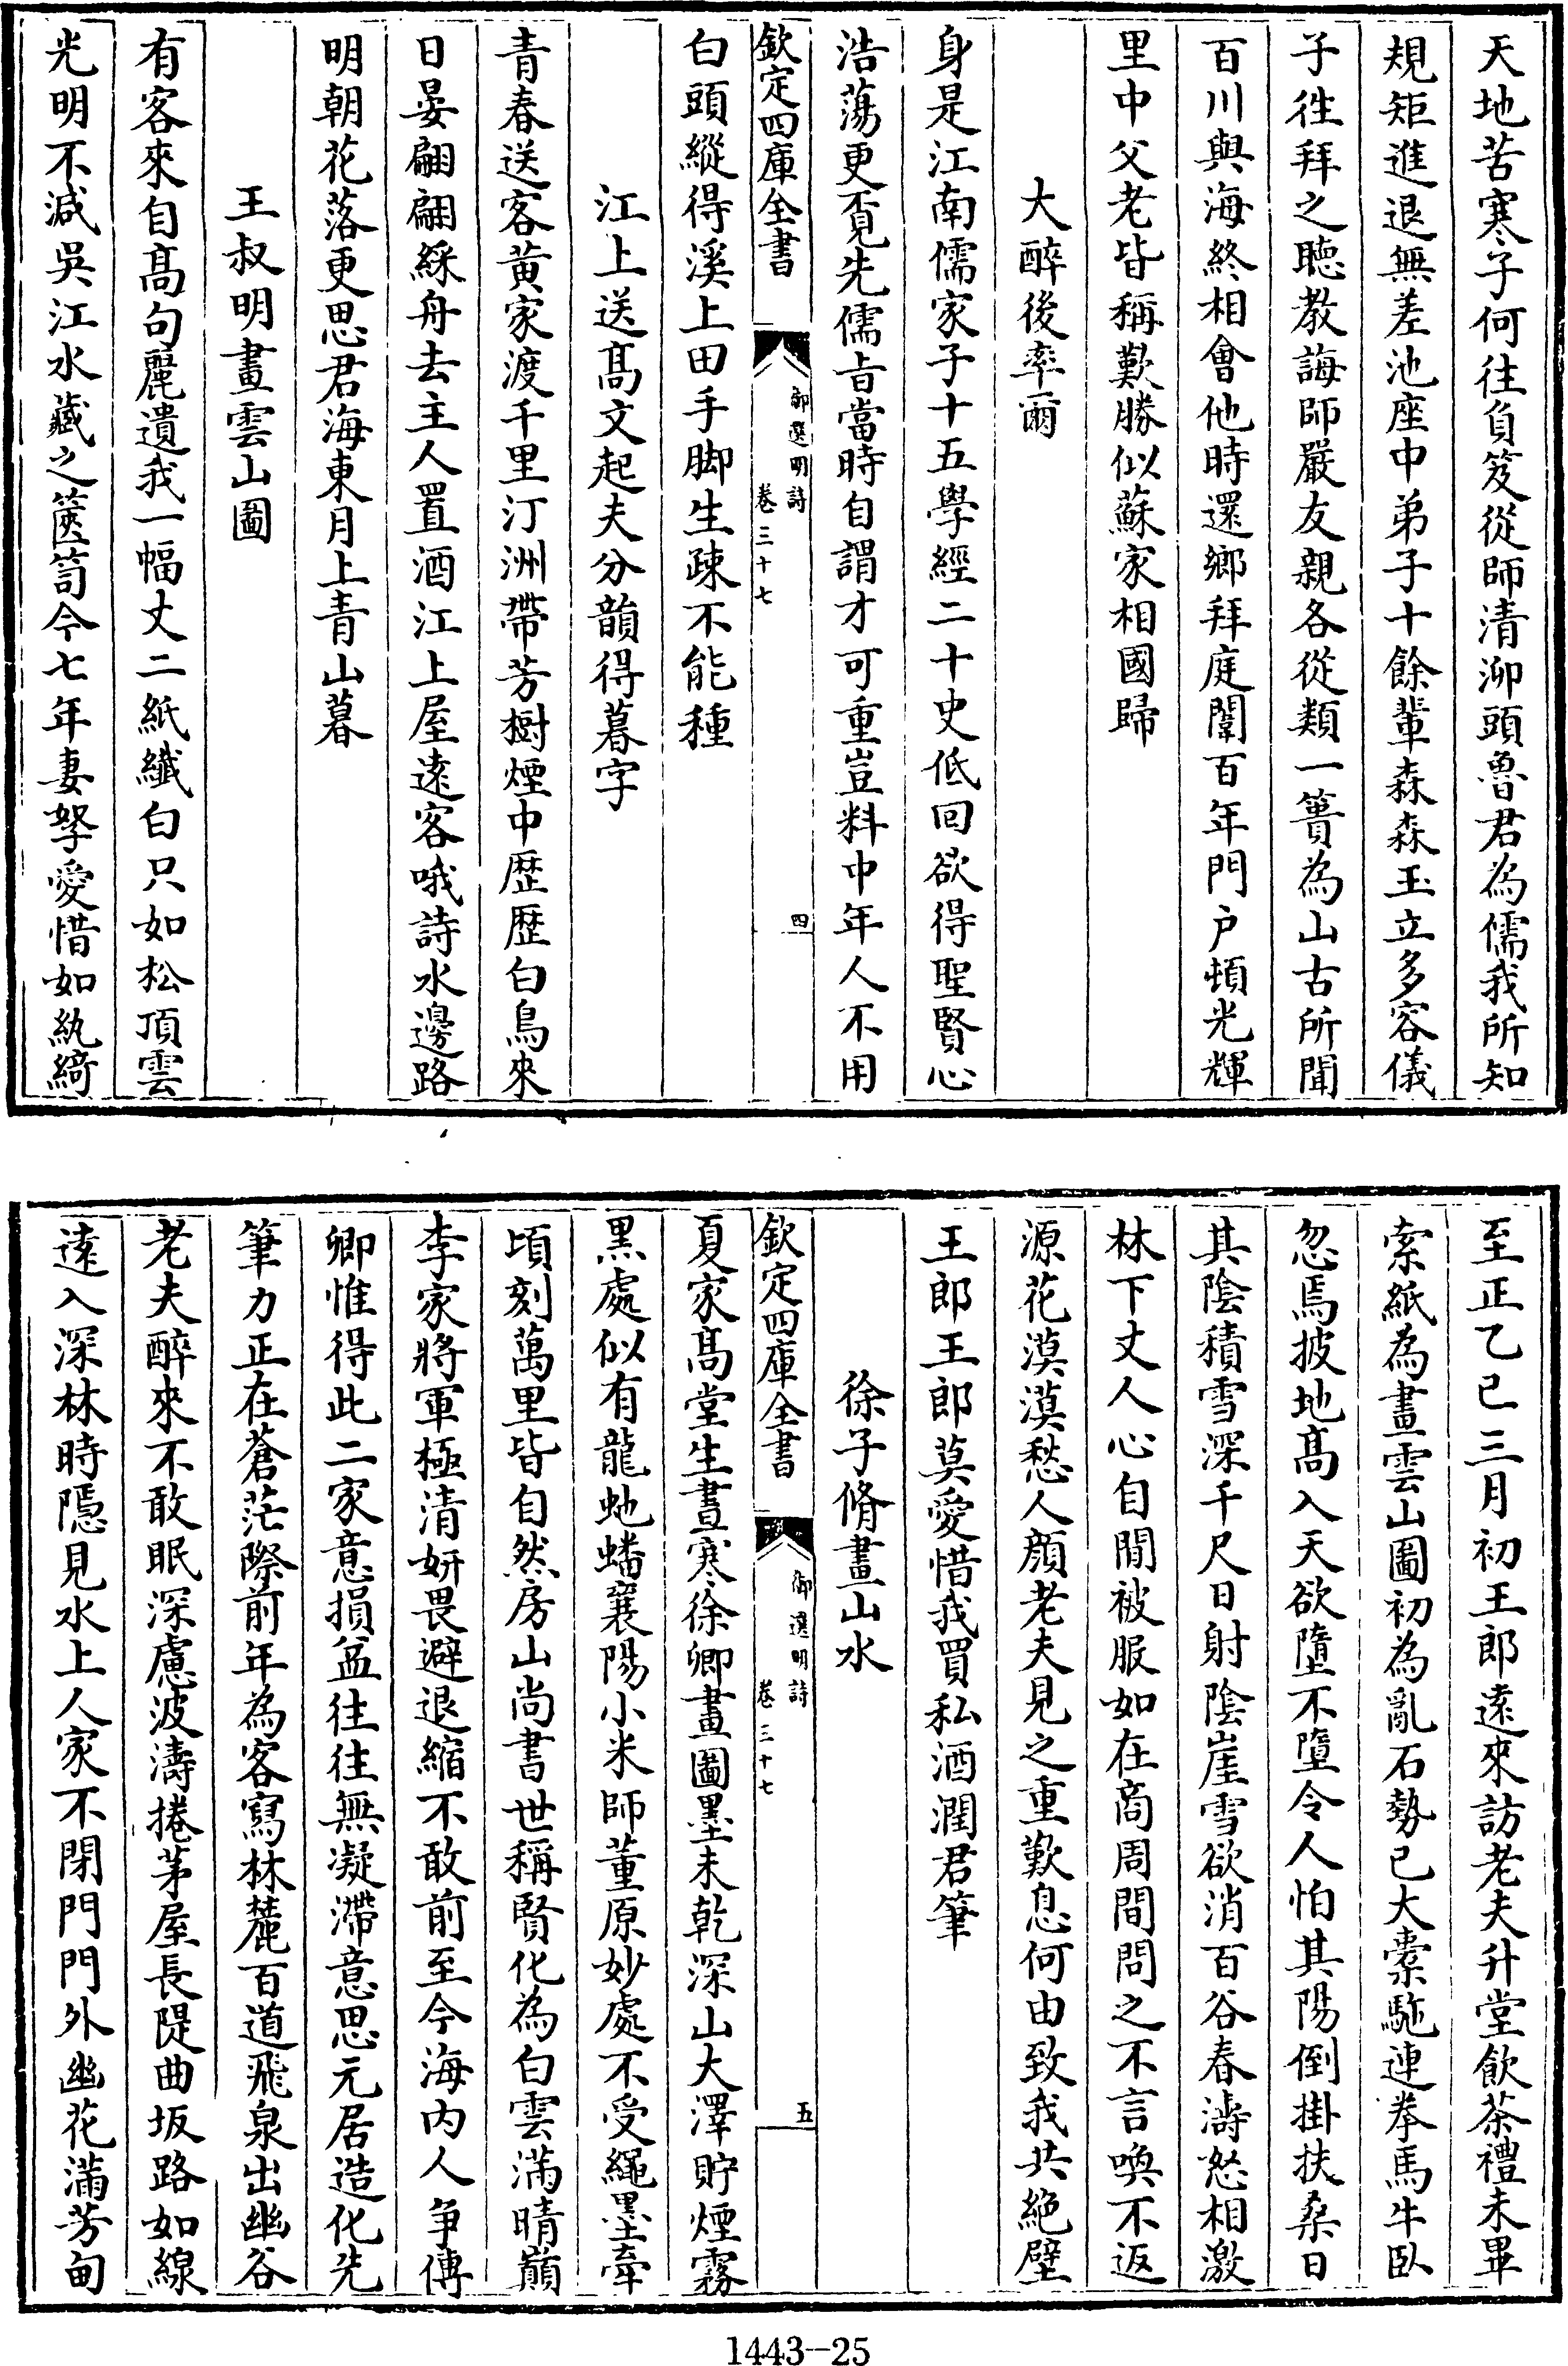 天地苦寒子何往負笈從師清泖頭魯君為儒我所知
規矩進退無差池座中弟子十餘輩森森玉立多容儀
子徃拜之聴教誨師嚴友親各從類一簣為山古所聞
百川與海終相會他時還鄉拜庭闈百年門户頓光輝
里中父老皆稱歎勝似蘇家相國歸
大醉後率爾
身是江南儒家子十五學經二十史低回欲得聖賢心
浩蕩更覔先儒㫖當時自謂才可重豈料中年人不用
欽定四庫全書
御選明詩
卷三十七
四
白頭縱得溪上田手脚生疎不能種
江上送髙文起夫分韻得暮字
青春送客黄家渡千里汀洲帶芳樹煙中歴歴白鳥來
日晏翩翩綵舟去主人置酒江上屋逺客哦詩水邊路
明朝花落更思君海東月上青山暮
王叔明畫雲山圖
有客來自髙句麗遺我一幅丈二紙纖白只如松頂雲
光明不減吳江水藏之篋笥今七年妻孥愛惜如紈綺
至正乙巳三月初王郎逺來訪老夫升堂飲茶禮未畢
索紙為畫雲山圖初為亂石勢已大橐駞連拳馬牛臥
忽焉披地髙入天欲墮不墮令人怕其陽倒掛扶桑日
其陰積雪深千尺日射陰崖雪欲消百谷春濤怒相激
林下丈人心自閒被服如在商周間問之不言喚不返
源花漠漠愁人顔老夫見之重歎息何由致我共絶壁
王郎王郎莫愛惜我買私酒潤君筆
徐子脩畫山水
欽定四庫全書
御選明詩
卷三十七
五
夏家髙堂生晝寒徐卿畫圖墨未乾深山大澤貯煙霧
黑處似有龍虵蟠襄陽小米師董原妙處不受繩墨牽
頃刻萬里皆自然房山尚書世稱賢化為白雲滿晴巔
李家將軍極清妍畏避退縮不敢前至今海内人争傳
卿惟得此二家意損益往往無凝滯意思元居造化先
筆力正在蒼茫際前年為客寫林麓百道飛泉出幽谷
老夫醉來不敢眠深慮波濤捲茅屋長隄曲坂路如線
逺入深林時隱見水上人家不閉門門外幽花滿芳甸
1443-25